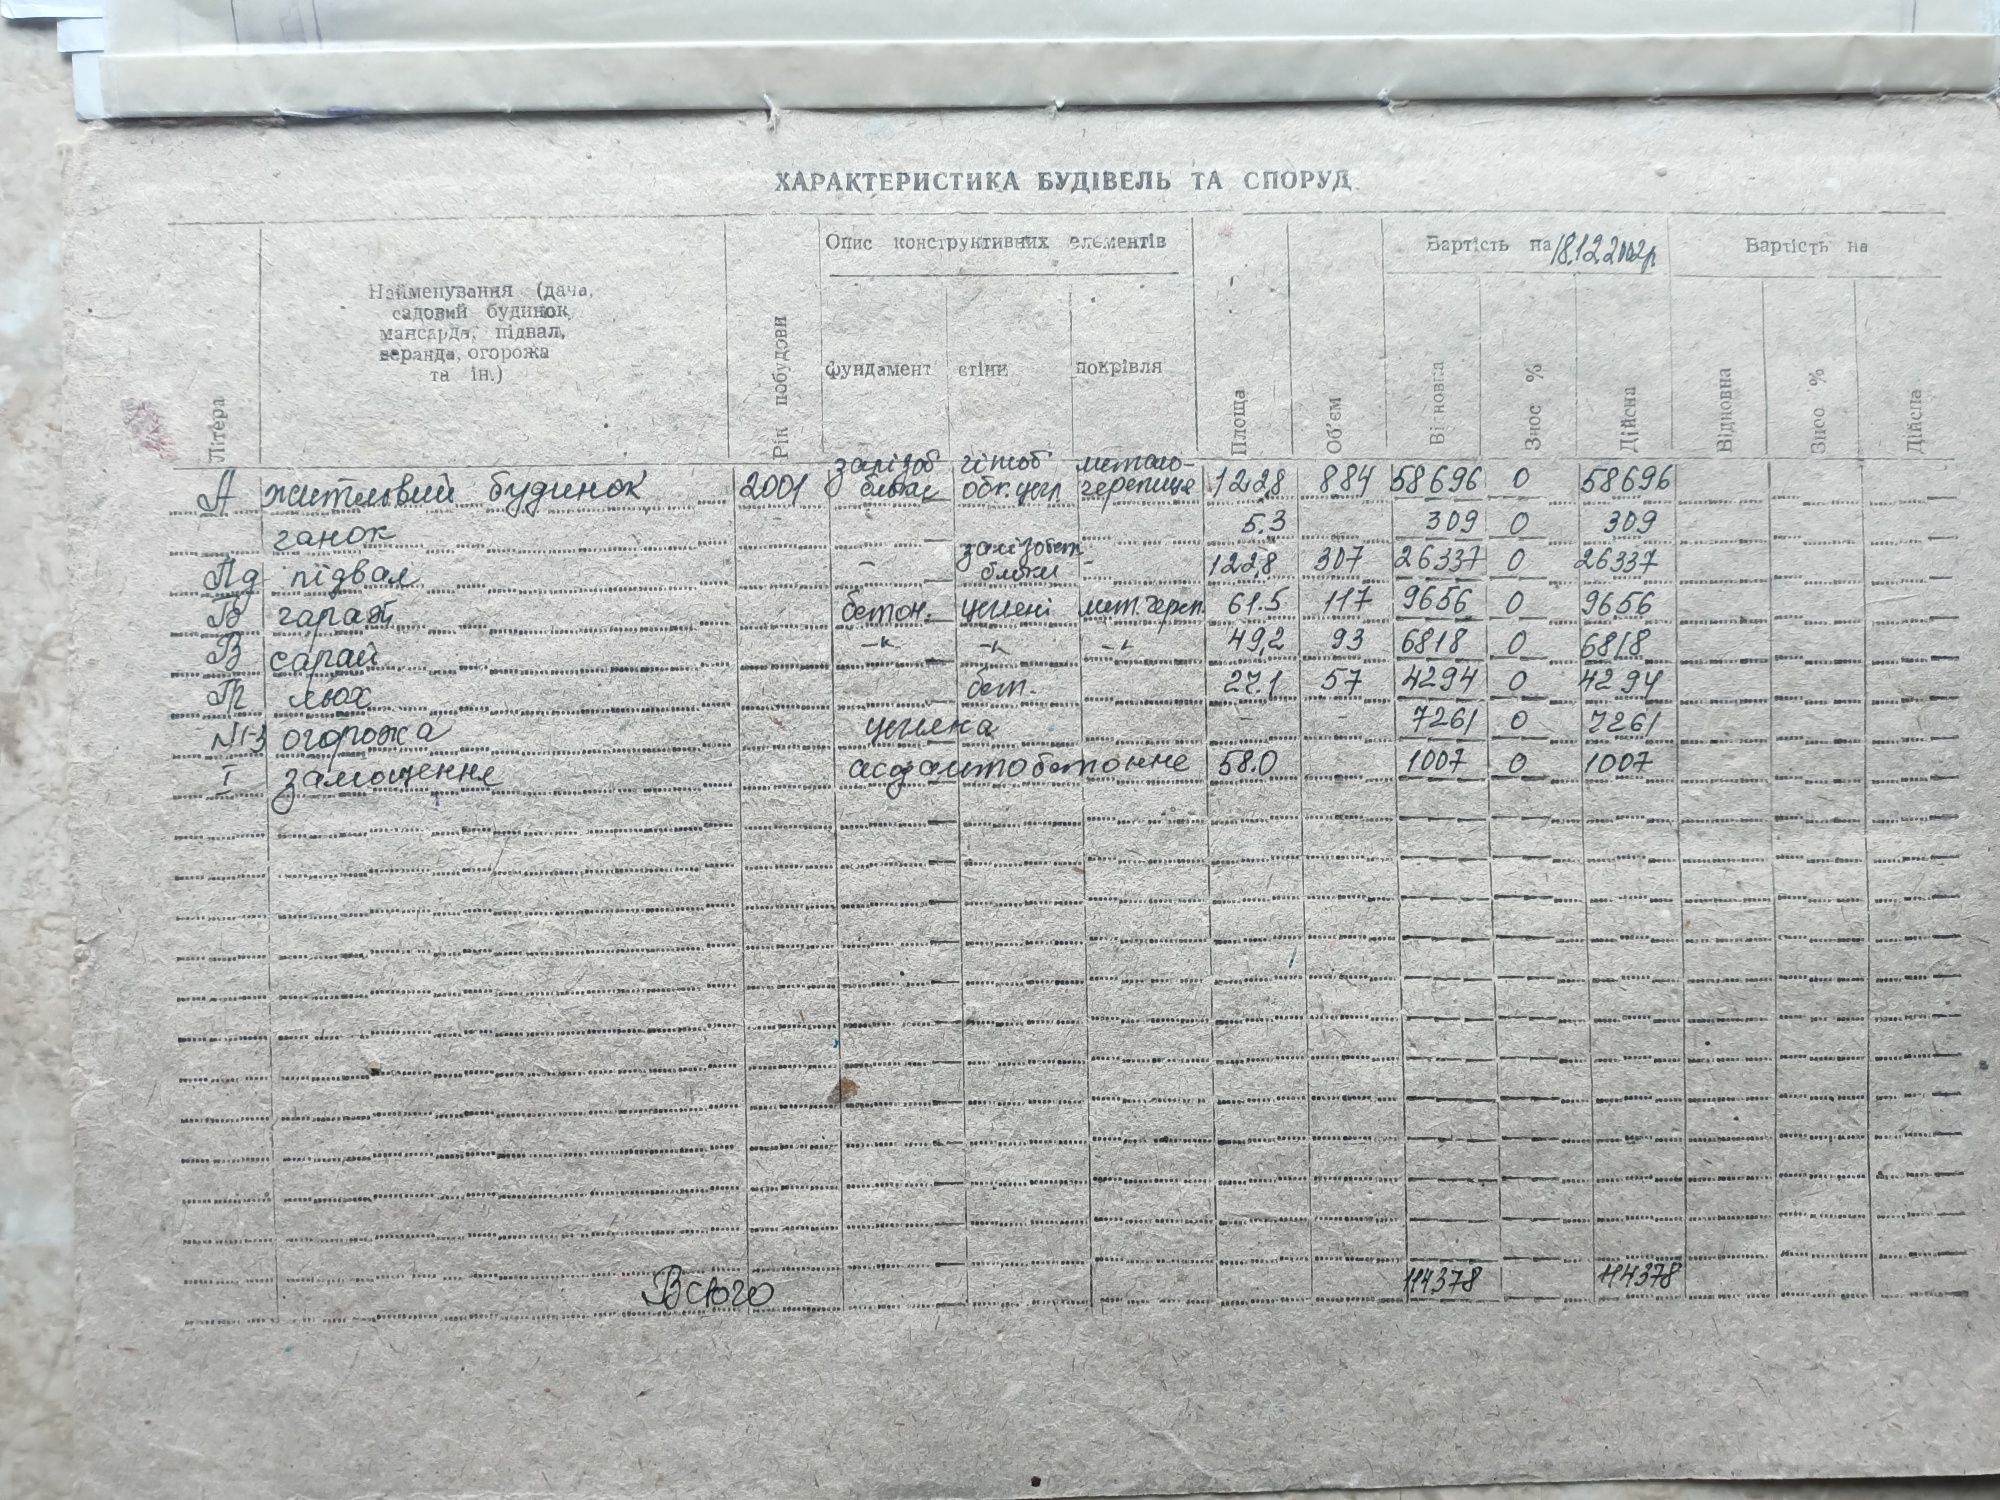 ХАРАКТЕРИСТИКА БУДІВЕЛЬ ТА СПОРУД
Літера
Найменування (дача,
садовий будинок,
мансарда, підвал,
веранда, огорожа
та ін.)
Рік побудови
Опис конструктивних елементів
фундамент стіни покрівля
Площа
Об'єм
Вартість на 18.12.2002р
Відновна
Знос %
Дійсна
Вартість на
Відновна
Знос %
Дійсна
залізоб гіпсоб метало-
А житловий будинок 2001 блоки обк. цегл черепиця 122,8 884 58696 0 58696
ганок - - 5.3 309 0 309
залізобет
Пд підвал - блоки - 122,8 307 26337 0 26337
Б гараж бетон. цегляні мет. череп. 61.5 117 9656 0 9656
В сарай -"- -"- -"- 49,2 93 6818 0 6818
Г льох бет. 27.1 57 4294 0 4294
N1-3 огорожа цегляна - - 7261 0 7261
I замощення асфальтобетонне 58.0 1007 0 1007
Всього 114378 114378